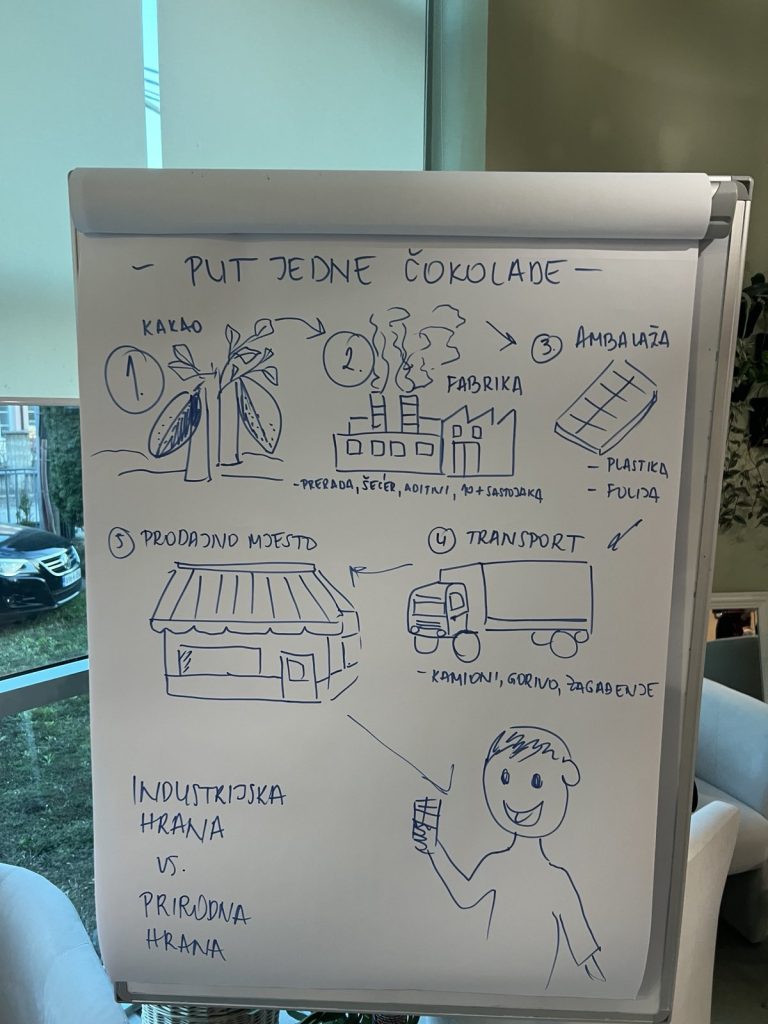 - PUT JEDNE ČOKOLADE -
KAKAO
1.
2.
FABRIKA
- PRERADA, ŠEĆER, ADITIVI, 10+ SASTOJAKA
3. AMBALAŽA
- PLASTIKA
- FOLIJA
4 TRANSPORT
- KAMIONI, GORIVO, ZAGAĐENJE
5 PRODAJNO MJESTO
INDUSTRIJSKA
HRANA
VS.
PRIRODNA
HRANA